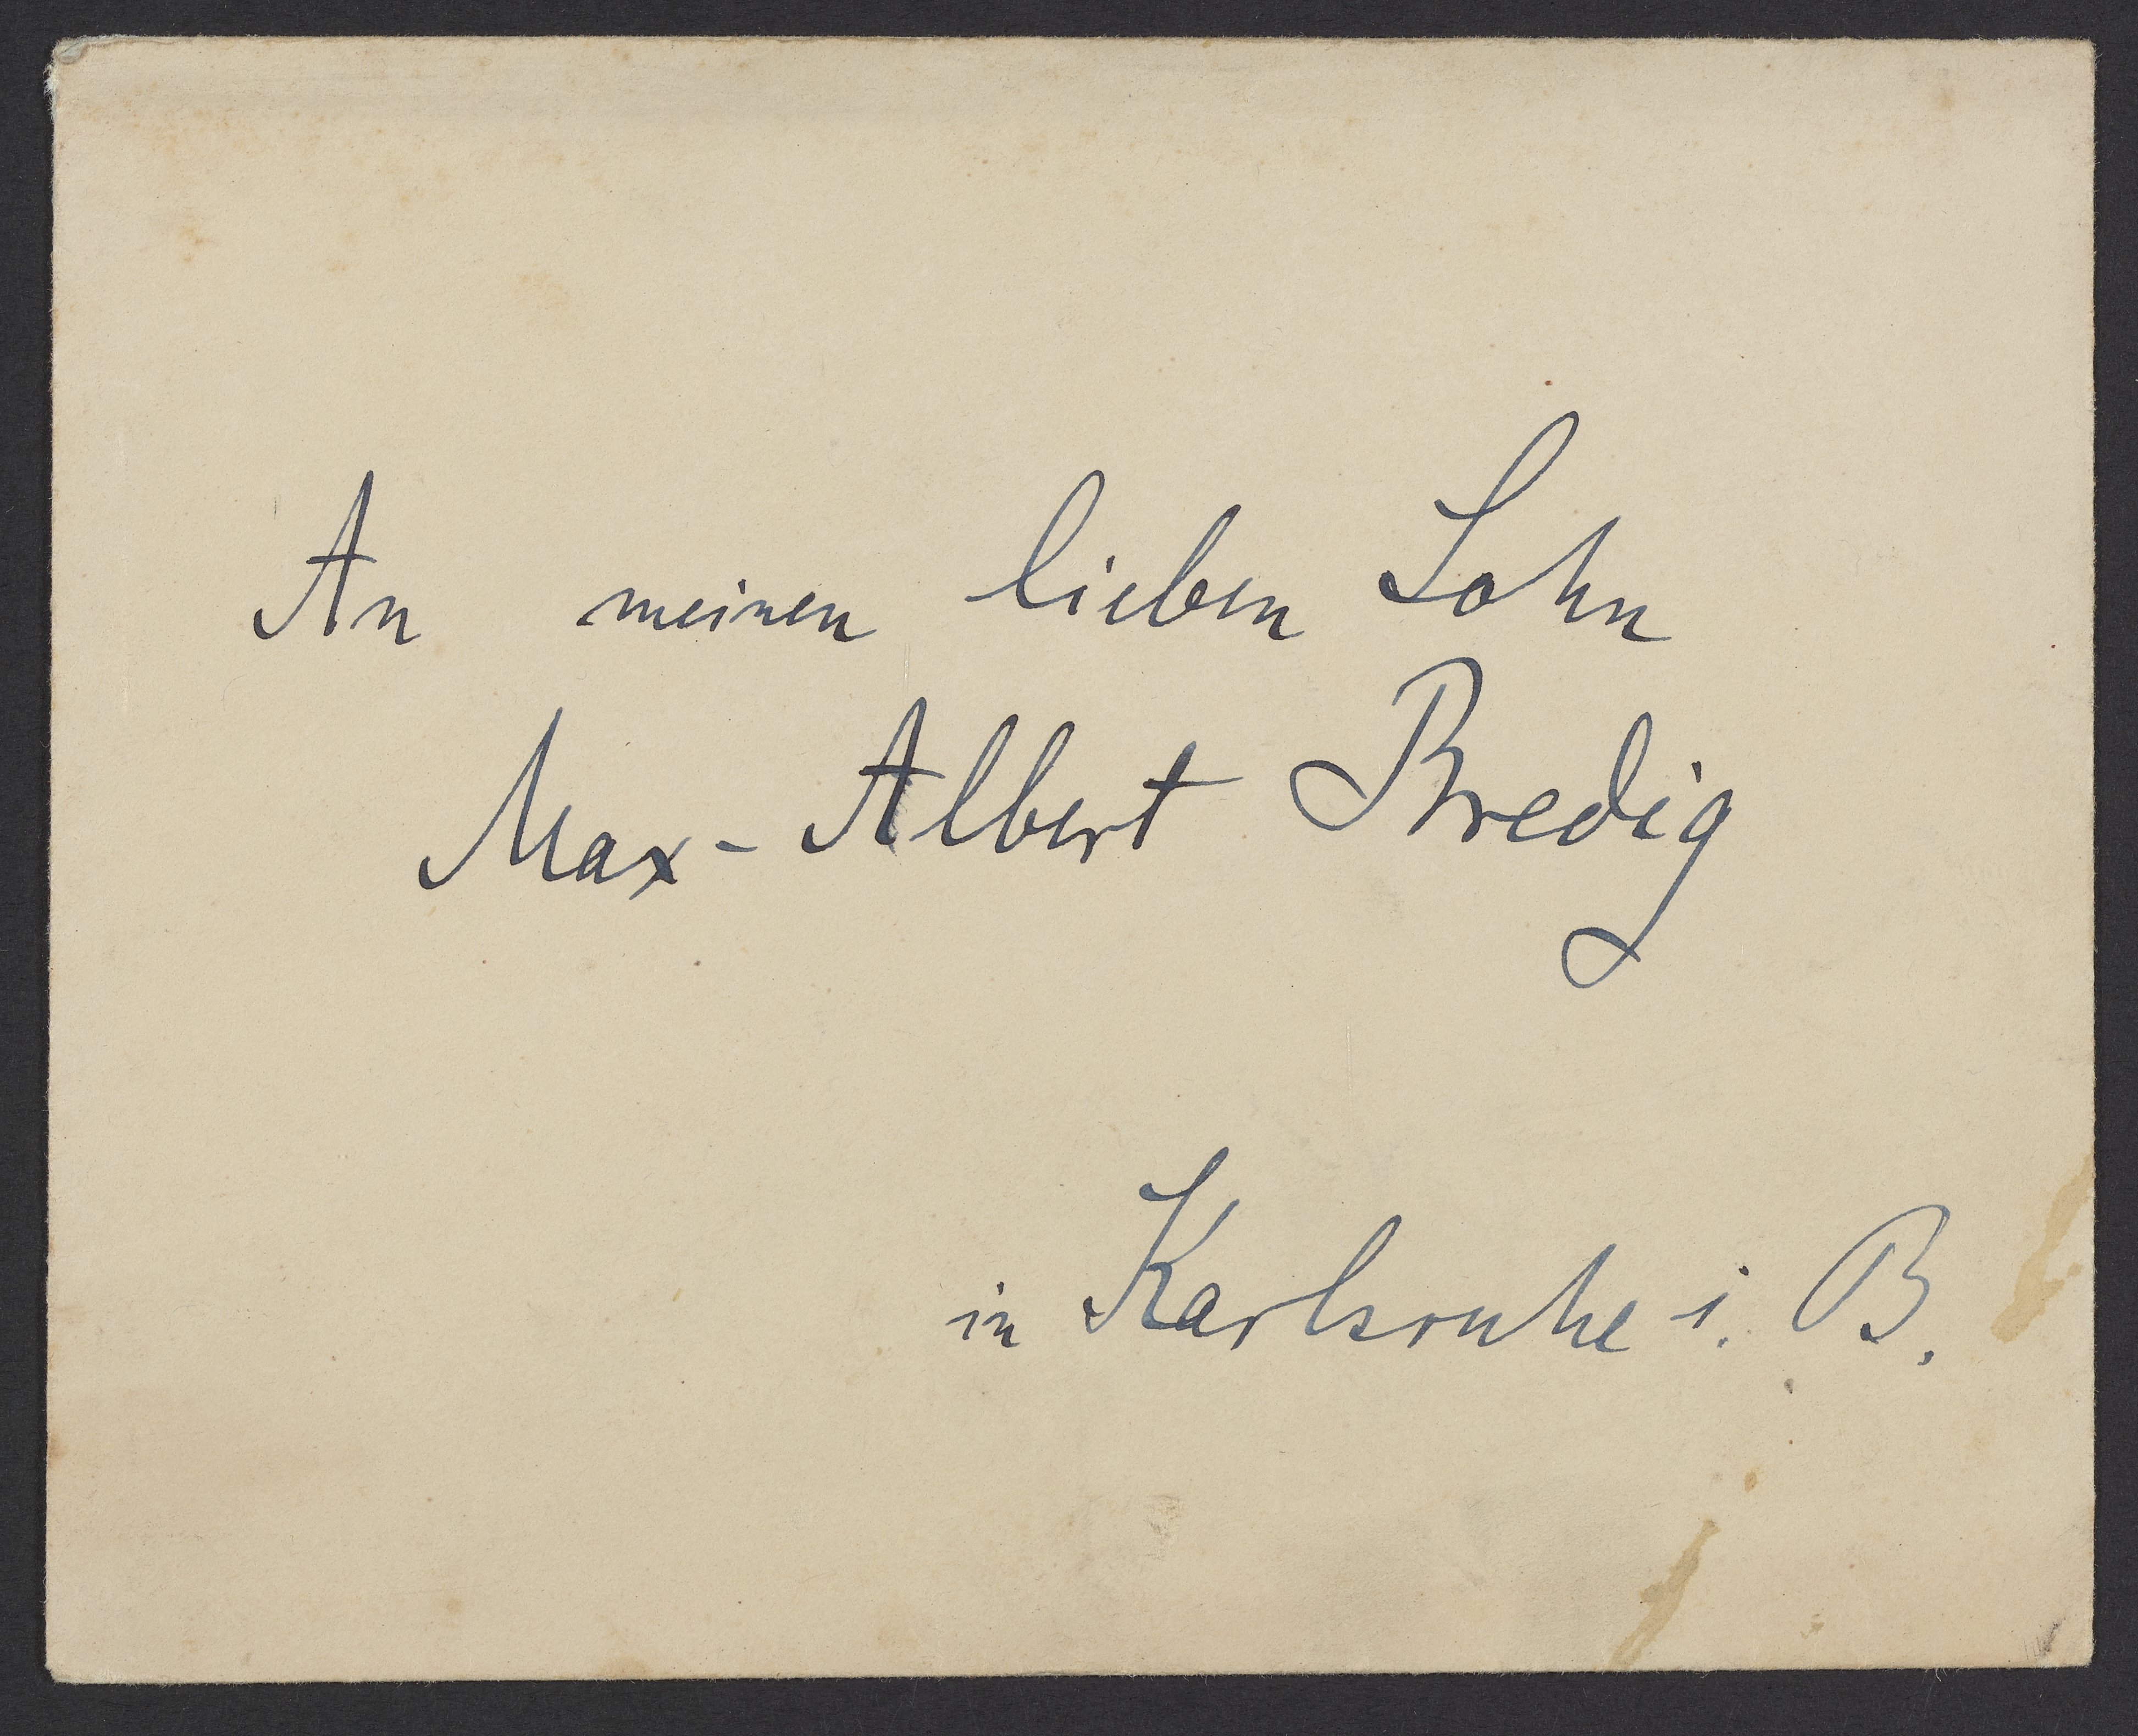 An meinen lieben Sohn
Max-Albert Bredig
in Karlsruhe i. B.